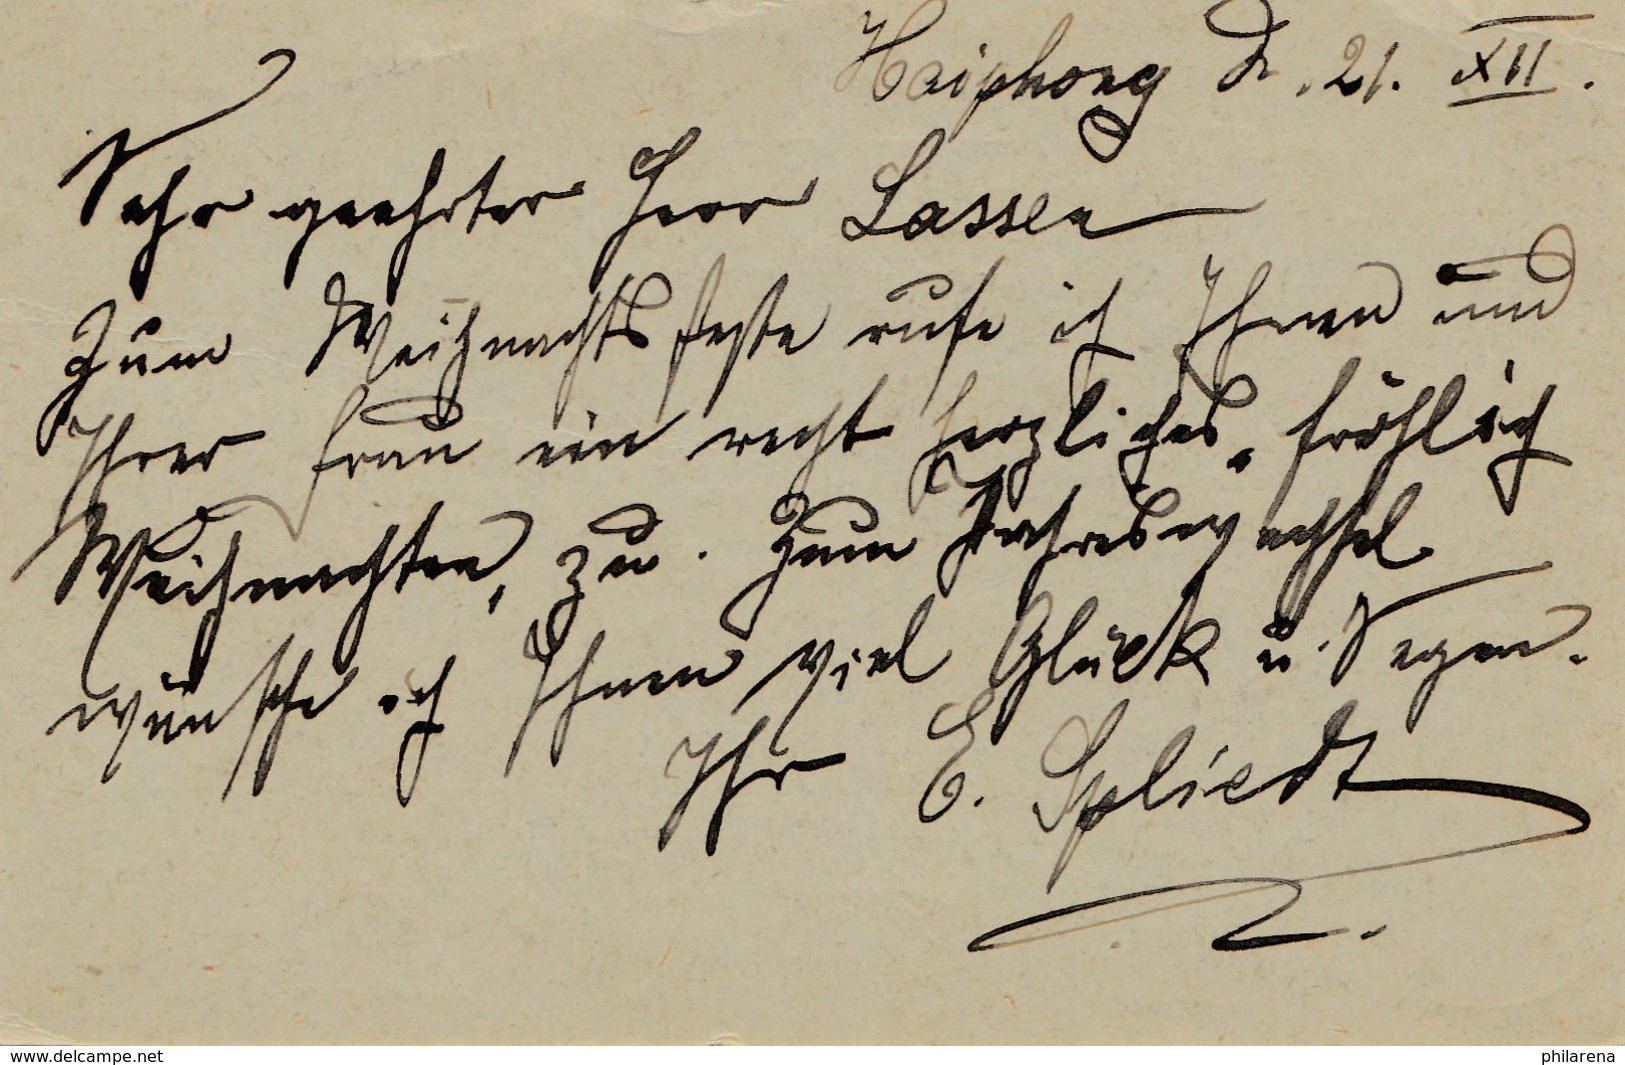 Haiphong d. 21. XII.
Sehr geehrter Herr Lassen
Zum Weihnachtsfeste rufe ich Ihnen und
Ihrer Frau ein recht herzliches „fröhlich
Weihnachten" zu. Zum Jahreswechsel
wünsche ich Ihnen viel Glück u. Segen.
Ihr E. Spliedt
www.delcampe.net
philarena